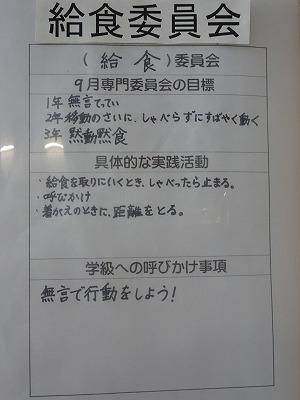 給食委員会
(給食)委員会
9月専門委員会の目標
1年 無言でってい
2年 移動のさいに、しゃべらずにすばやく動く
3年 黙動黙食
具体的な実践活動
・給食を取りにいくとき、しゃべったら止まる。
・呼びかけ
・着がえのときに、距離をとる。
学級への呼びかけ事項
無言で行動をしよう!